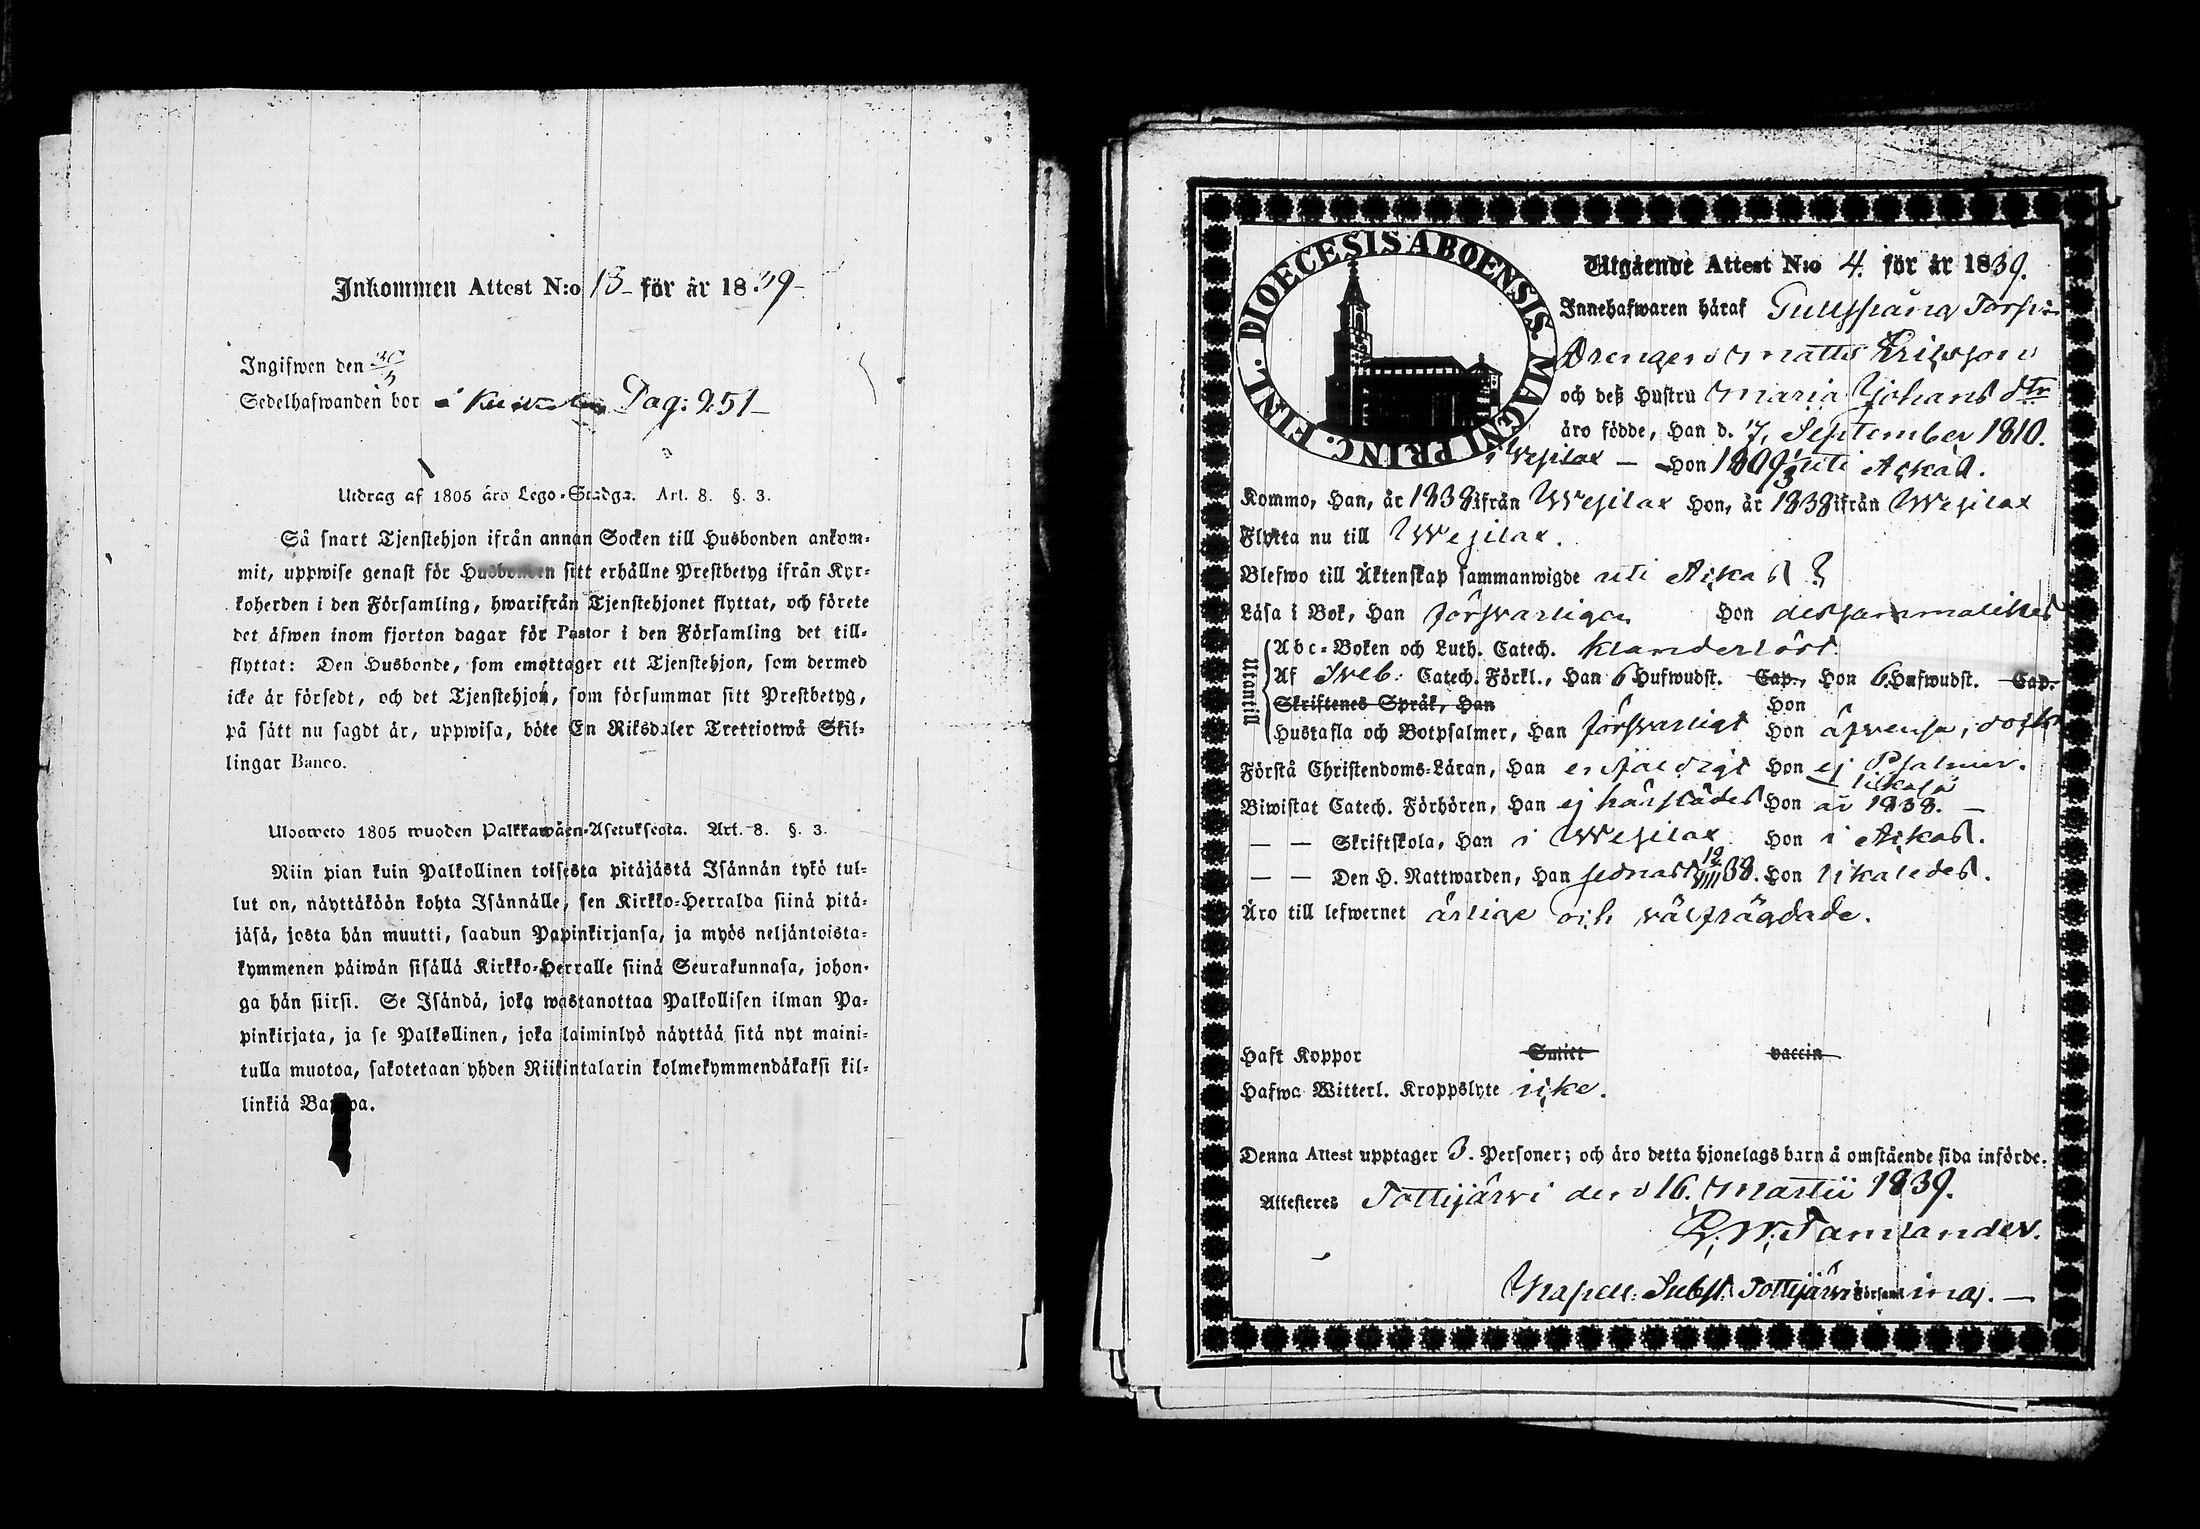 Inkommen Attest N:o 13 för år 1839
Ingifwen den
Sedelhafwanden bor i Pag: 251
Utdrag af 1805 års Lego-Stadga. Art. 8. §. 3.
Så snart Tjenstehjon ifrån annan Socken till Husbonden ankom-
mit, uppwise genast för Husbonden sitt erhållne Prestbetyg ifrån Kyr-
koherden i den Församling, hwarifrån Tjenstehjonet flyttat, och förete
det äfwen inom fjorton dagar för Pastor i den Församling det till-
flyttat: Den Husbonde, som emottager ett Tjenstehjon, som dermed
icke är försedt, och det Tjenstehjon, som försummar sitt Prestbetyg,
på sätt nu sagdt är, uppwisa, böte En Riksdaler Trettiotwå Skil-
lingar Banco.
Uloosweto 1805 wuoden Palkkawäen-Asetuksesta. Art. 8. §. 3.
Niin pian kuin Palkollinen toisesta pitäjästä Isännän tykö tul-
lut on, näyttäköön kohta Isännälle, sen Kirkko-Herralda siinä pitä-
jäsä, josta hän muutti, saadun Papinkirjansa, ja myös neljäntoista-
kymmenen päiwän sisällä Kirkko-Herralle siinä Seurakunnasa, johon-
ga hän siirsi. Se Isändä, joka wastanottaa Palkollisen ilman Pa-
pinkirjata, ja se Palkollinen, joka laiminlyö näyttää sitä nyt maini-
tulla muotoa, sakotetaan yhden Riikintalarin kolmekymmendäkaksi kil-
linkiä Bankoa.
FINL. DIOECESIS ABOENSIS. MAGNI PRINC.
Utgående Attest N:o 4. för år 1839.
Innehafwaren häraf Torp
Drengen Matts Ericsson
och deß Hustru Maria Johans dtr
äro födde, Han d. 7. September 1810.
i Wesilax — Hon 1809 uti Ackas.
Kommo, Han, år 1838 ifrån Wesilax Hon, år 1838 ifrån Wesilax
Flytta nu till Wesilax.
Blefwo till Äktenskap sammanwigde uti Ackas ?
Läsa i Bok, Han försvarligen Hon dessammaledes
Utantill
Abc-Boken och Luth. Catech. klanderlöst.
Af Sveb: Catech. Förkl., Han 6 Hufwudst. Cap., Hon 6. Hufwudst. Cap.
Skriftenes Språk, Han Hon
Hustafla och Botpsalmer, Han försvarligt Hon äfvenså, dock
Förstå Christendoms-Läran, Han enfäldigt Hon ej Psalmer.
likaså
Biwistat Catech. Förhören, Han ej härstädes Hon år 1838. —
— — Skriftskola, Han i Wesilax Hon i Ackas.
— — Den H. Nattwarden, Han sednast 12/VIII 38. Hon likaledes.
Äro till lefwernet ärlige och välfrägdade.
Haft Koppor Smitt vaccin
Hafwa Witterl. Kroppslyte icke.
Denna Attest upptager 3. Personer; och äro detta hjonelags barn å omstående sida införde.
Attesteres Tottijärvi den 16. Martii 1839.
Tamlander.
Kapell: Subst. Tottijärvi Församling. —